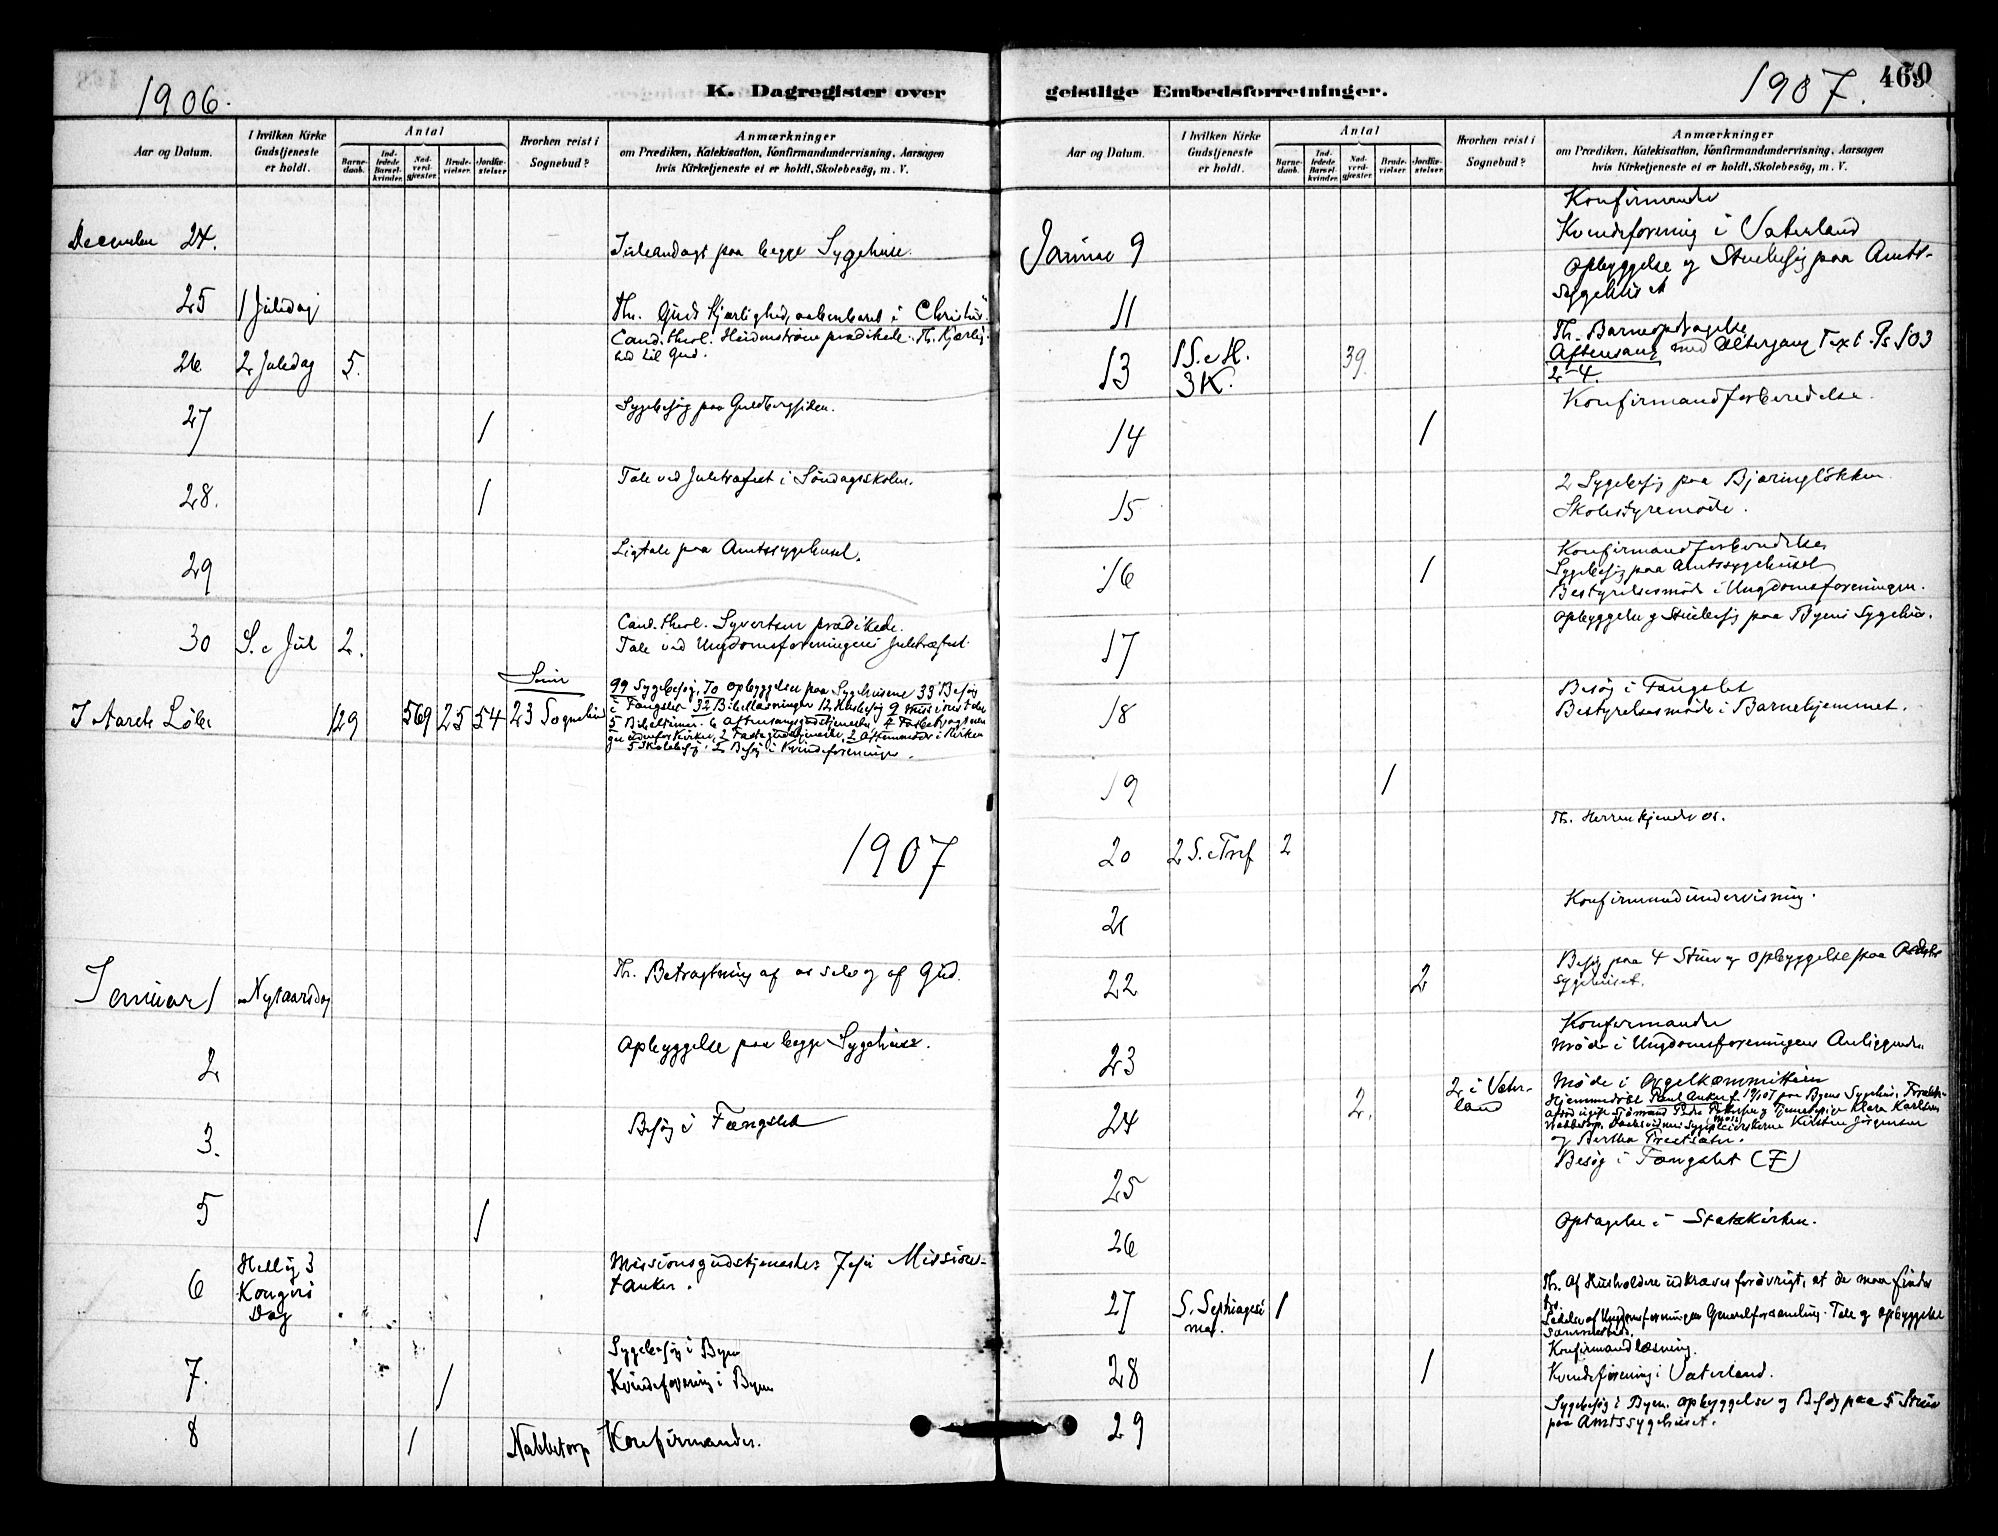 1906.
K. Dagregister over
Aar og Datum.
I hvilken Kirke Gudstjeneste er holdt.
Antal
Barnedaab.
Indledede Barselkvinder.
Nadverdgjæster.
Brudevielser.
Jordfæstelser.
Hvorhen reist i Sognebud?
Anmærkninger
om Prædiken, Katekisation, Konfirmandundervisning, Aarsagen
hvis Kirketjeneste ei er holdt, Skolebesög, m. V.
December 24.
Juleandagt paa begge Sygehuse.
25 1 Juledag
Th. Guds Kjærlighed, aabenbaret i Christus.
26 2 Juledag 5.
Cand. theol. Heidenstrøm prædikede. Th. Kjærlighed til Gud.
27 1
Sygebesög paa
28. 1
Tale ved Juletræfest i Söndagsskolen.
29
Ligtale paa Amtssygehuset.
30 S. e Jul 2.
Cand. theol. Syvertsen prædikede.
Tale ved Ungdomsforeningens Juletræfest.
I Aarets Löb 129 569 25 54 23 Sognebud
99 Sygebesög, 70 Opbyggelser paa Sygehusene 33 Besög
i Fængslet 32 Bibellæsninger 12 Husbesög 9
5 Bibeltimer. 6 Aftensangsgudstjenester,
5 Skolebesög, 2 Besög i Kvindeforeninger.
1907
Januar 1 Nytaarsdag
Th. Betragtning af os selv og af Gud.
2
Opbyggelse paa begge Sygehuse.
3.
Besög i Fængslet
5 1
6 Hellig 3 Kongers Dag
Missionsgudstjeneste: Jesu Missionstanker.
7. 1
Sygebesög i Byen
Kvindeforening i Byen
8 1 Nabbetorp
Konfirmander.
geistlige Embedsforretninger.
1907.
469
Aar og Datum.
I hvilken Kirke Gudstjeneste er holdt.
Antal
Barnedaab.
Indledede Barselkvinder.
Nadverdgjæster.
Brudevielser.
Jordfæstelser.
Hvorhen reist i Sognebud?
Anmærkninger
om Prædiken, Katekisation, Konfirmandundervisning, Aarsagen
hvis Kirketjeneste ei er holdt, Skolebesög, m. V.
Januar 9
Konfirmander
Kvindeforening i Vaterland
11
Opbyggelse og Stuebesög paa Amtssygehuset
13 1 S. e H. 3 K. 39.
Th. Barneopdragelse
Aftensang med Altergang Text Ps 103
2-4.
14 1
Konfirmandforberedelse.
15
2 Sygebesög paa Bjaringlökken.
Skolestyremöde.
16 1
Konfirmandforberedelse
Sygebesög paa Amtssygehuset
Bestyrelsesmöde i Ungdomsforeningen.
17
Opbyggelse og Stuebesög paa Byens Sygehus.
18
Besög i Fængslet
Bestyrelsesmöde i Barnehjemmet.
19 1
20 2 S. e Tref 2
Th. Herren kjender os.
21
Konfirmandundervisning.
22 2
Besög paa 4 Stuer og Opbyggelse paa
sygehuset.
23
Konfirmander
Möde i Ungdomsforeningens Anliggender
24 2. 2 i Vaterland
Möde i Orgelkommitteen
Hjemmedöbt
og Bertha
25
Besög i Fængslet (7)
26
Optagelse i Statskirken.
27 S. Septuagesima. 1
Th. Af Husholdere udkræves forövrigt, at de maa findes
tro.
Ledelse af Ungdomsforeningens Generalforsamling. Tale og Opbyggelse
sammesteds.
28 1
Konfirmandlæsning.
Kvindeforening i Vaterland.
29
Sygebesög i Byen. Opbyggelse og Besög paa 5 Stuer
paa Amtssygehuset.